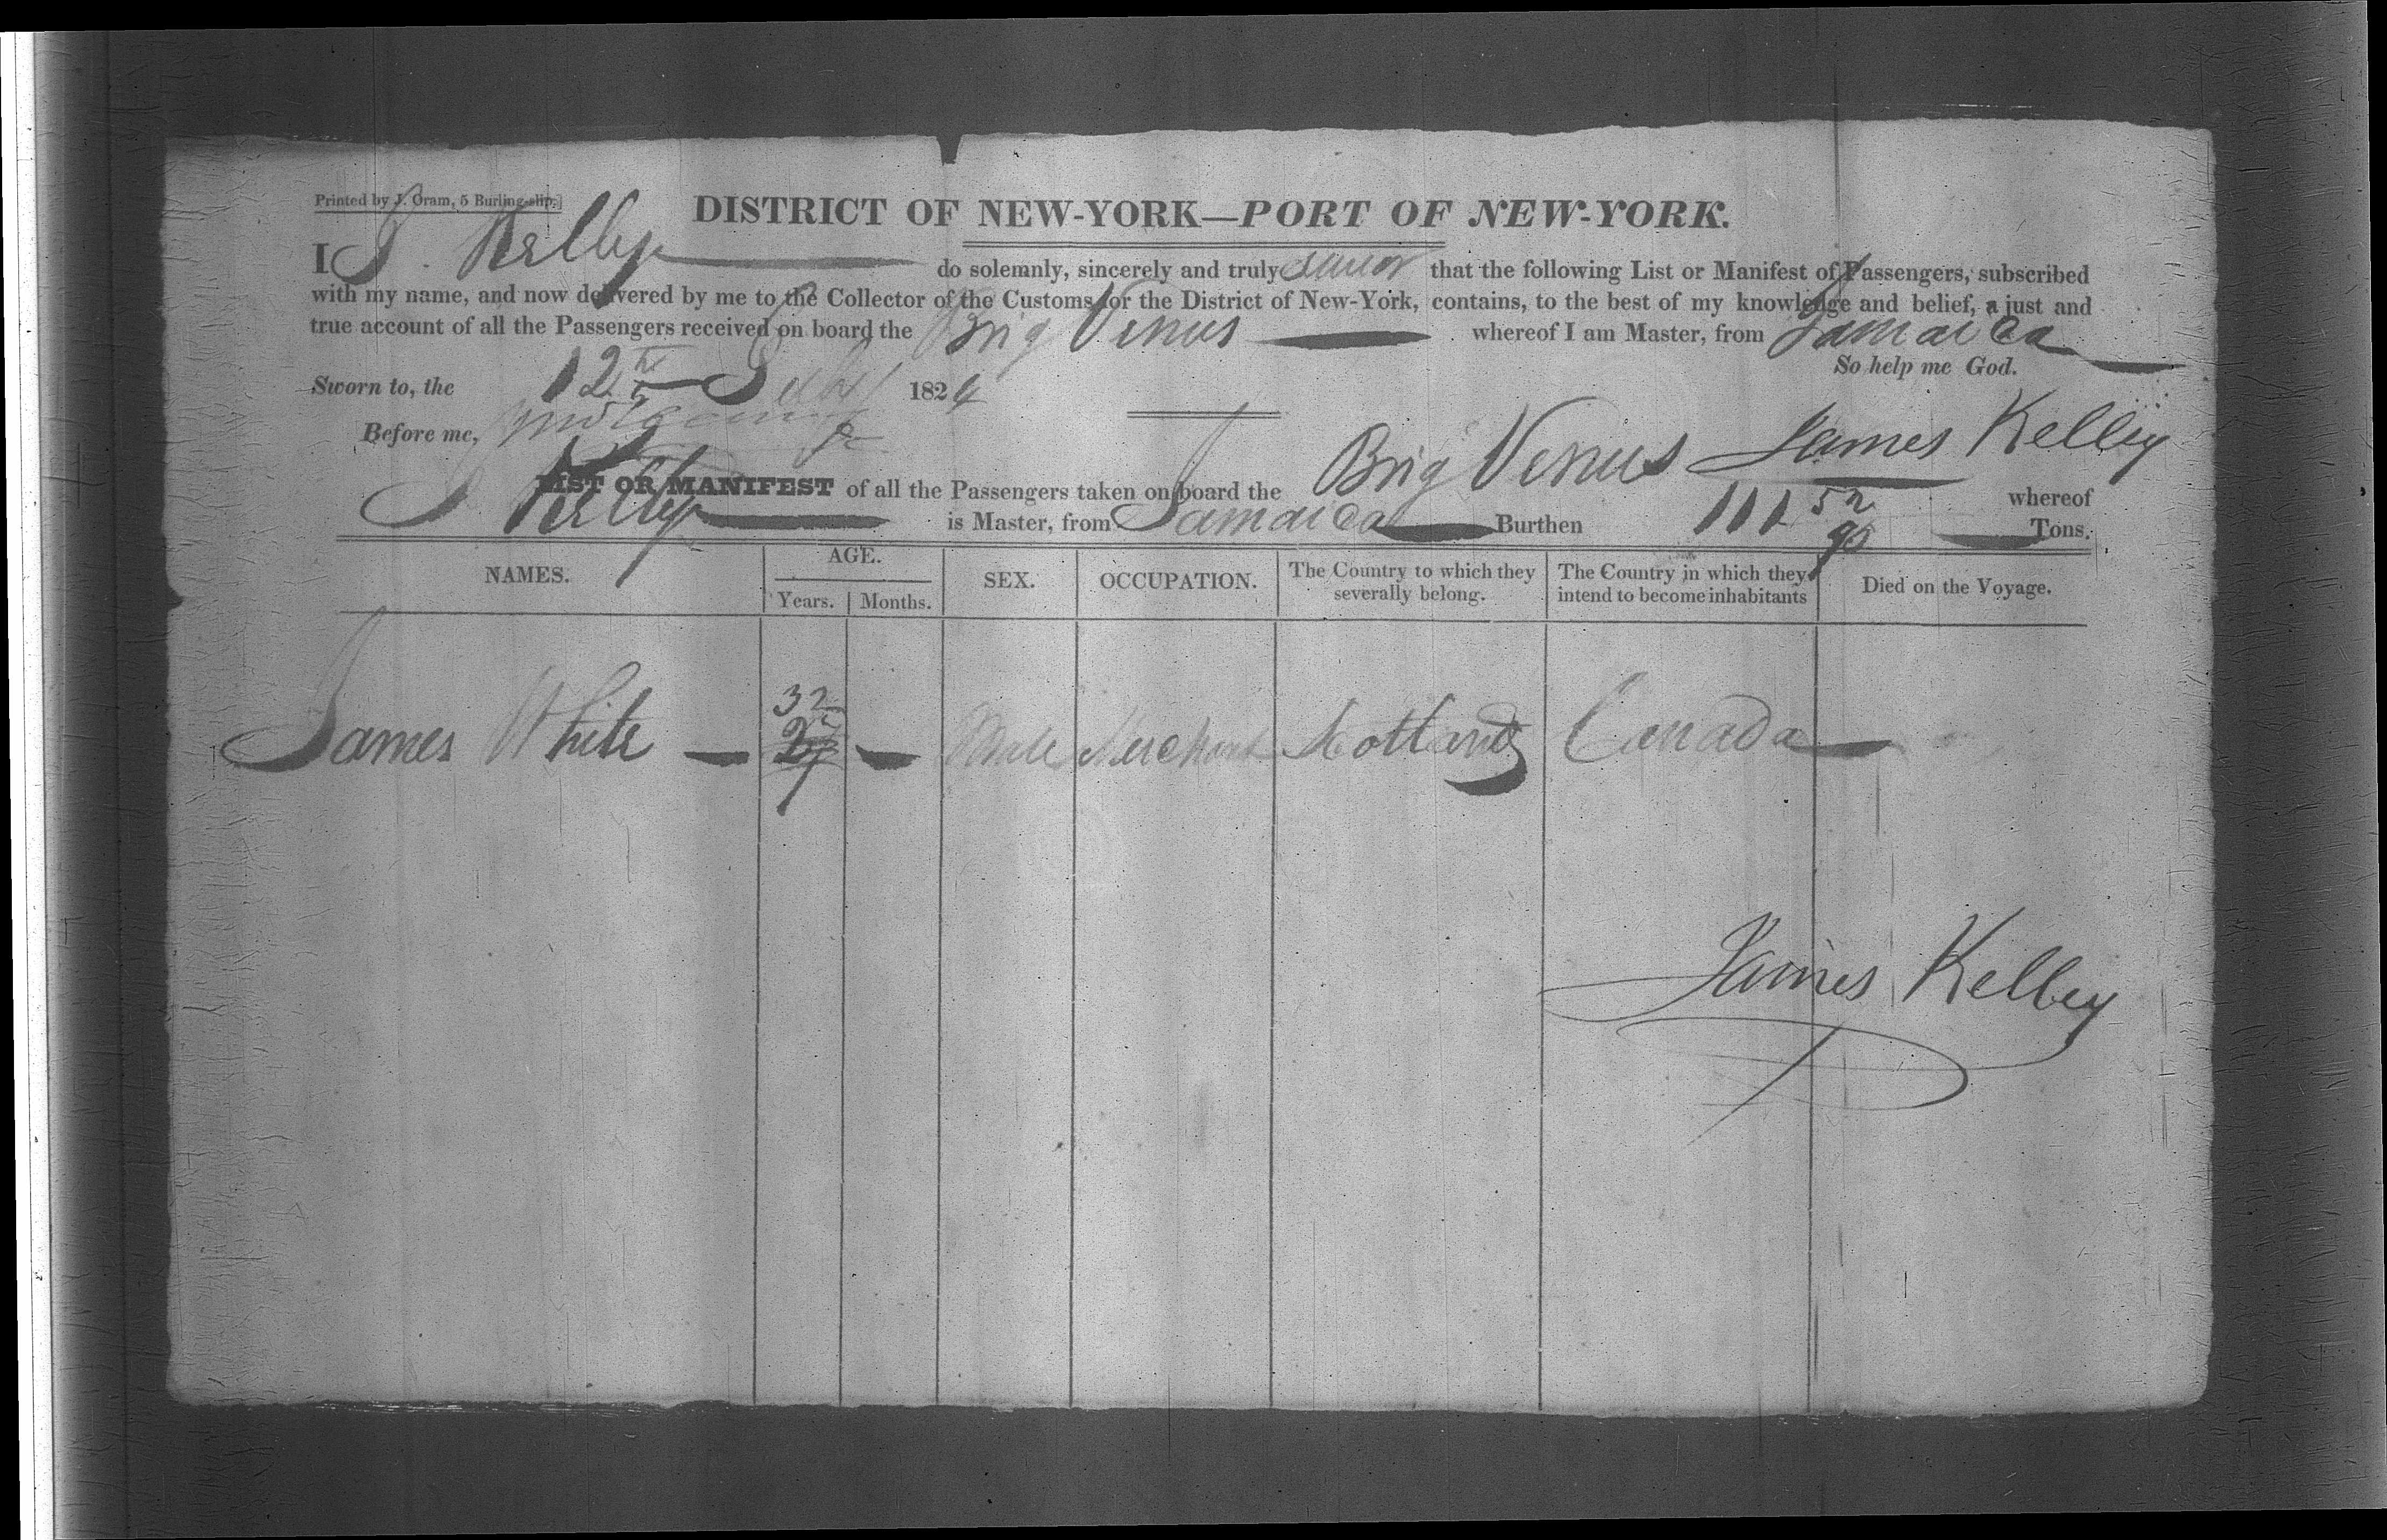 Printed by J. Oram, 5 Burling-slip.]
DISTRICT OF NEW-YORK—PORT OF NEW-YORK.
I J. Kelley do solemnly, sincerely and truly swear that the following List or Manifest of Passengers, subscribed
with my name, and now delivered by me to the Collector of the Customs for the District of New-York, contains, to the best of my knowledge and belief, a just and
true account of all the Passengers received on board the Brig Venus whereof I am Master, from Jamaica
So help me God.
Sworn to, the 12th 1824
Before me,
James Kelley
LIST OR MANIFEST of all the Passengers taken on board the Brig Venus whereof
J Kelley is Master, from Jamaica Burthen 111 52/95 Tons.
NAMES. AGE. SEX. OCCUPATION. The Country to which they severally belong. The Country in which they intend to become inhabitants Died on the Voyage.
Years. Months.
32
James White — 27 — Male Merchant Scotland Canada —
James Kelley